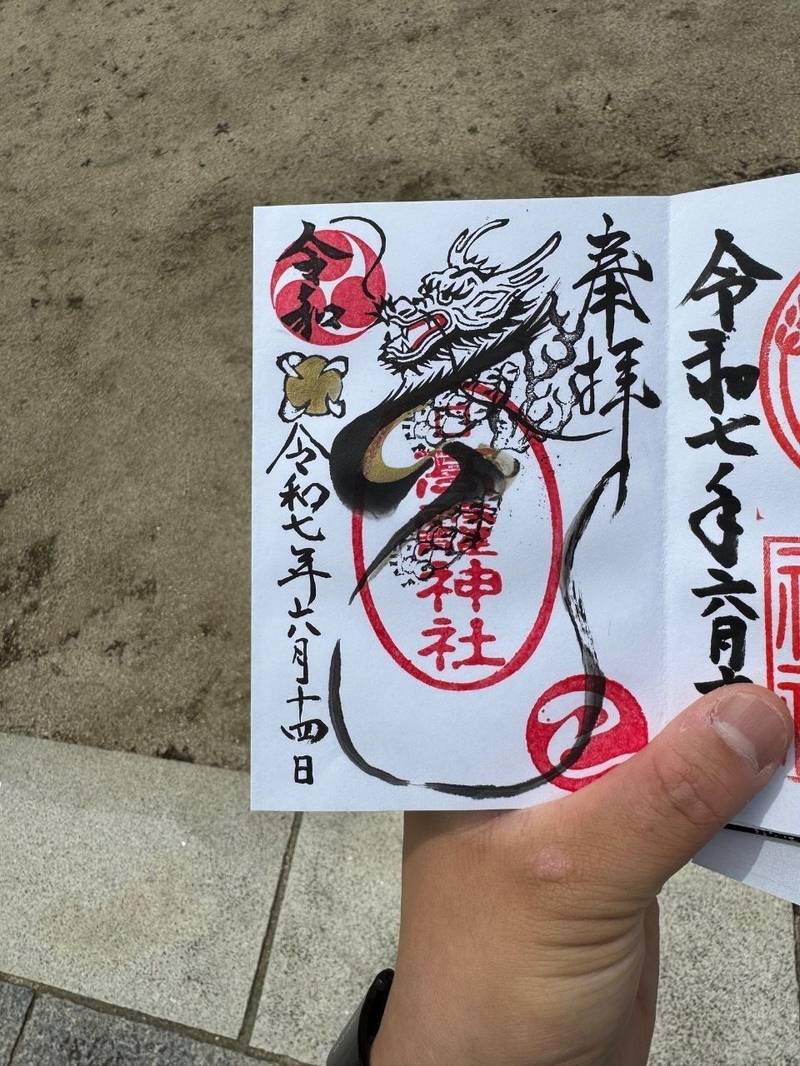 令和七年六月
奉拝
神社
令和
令和七年六月十四日